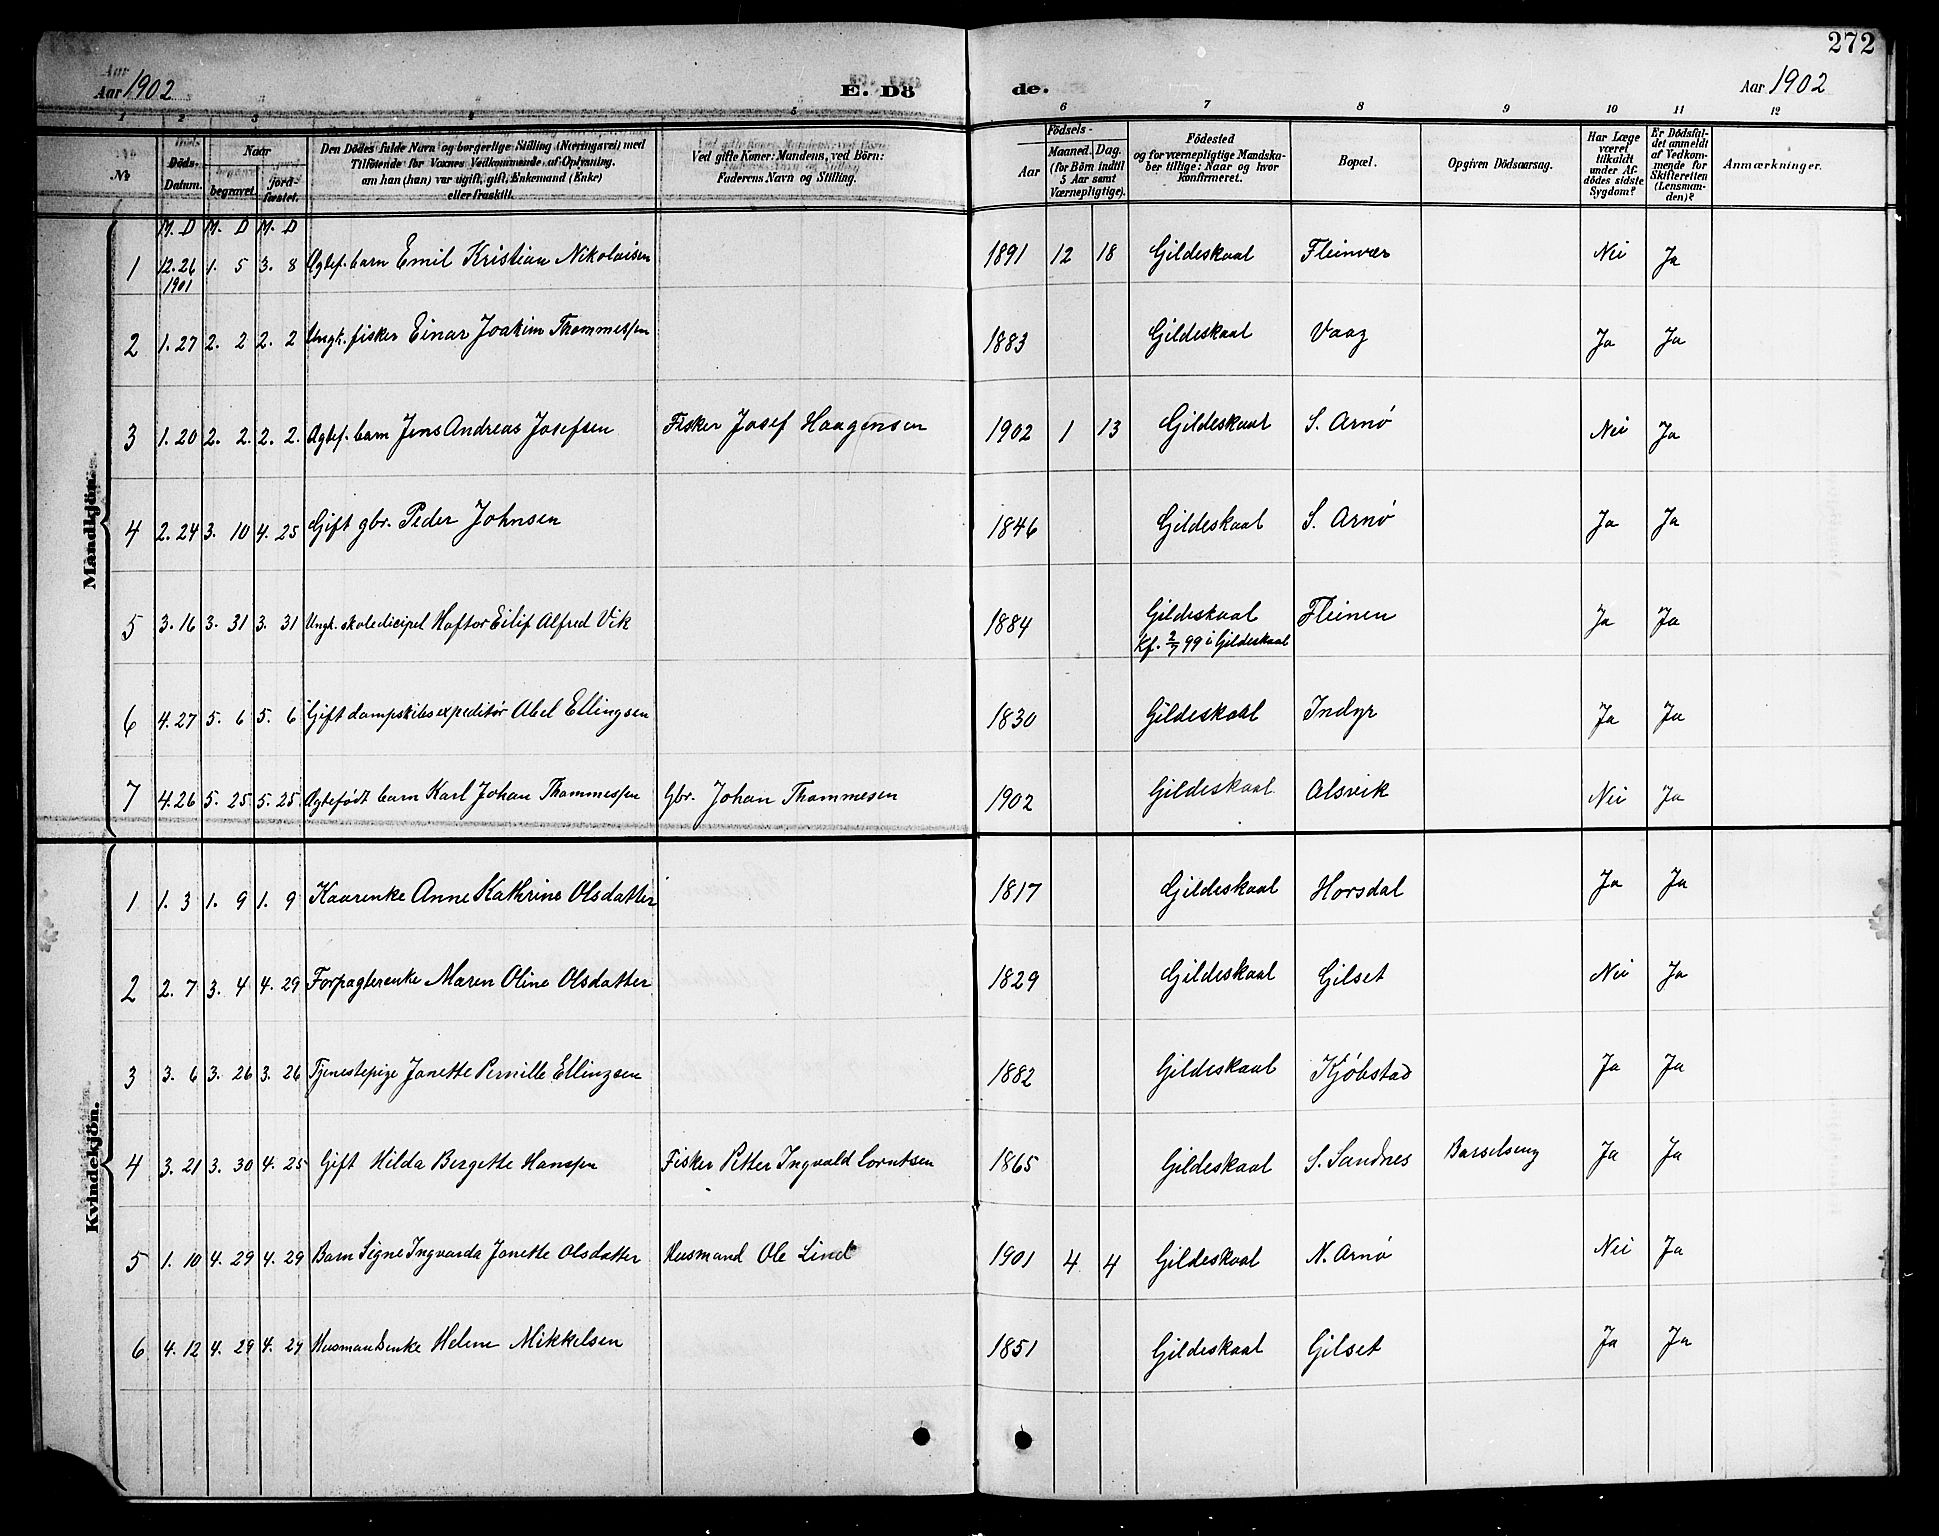 272
Aar 1902 E. Dö de. Aar 1902
1 2 3 4 5 6 7 8 9 10 11 12
No
Döds-Datum.
Naar begravet. jordfæstet.
Den Dödes fulde Navn og borgerlige Stilling (Næringsvei) med Tilföiende for Voxnes Vedkommende af Oplysning, om han (hun) var ugift, gift, Enkemand (Enke) eller fraskilt.
Ved gifte Koner: Mandens, ved Börn: Faderens Navn og Stilling.
Födsels-
Aar
Maaned. Dag. (for Börn indtil 5 Aar samt Værnepligtige).
Födested og for værnepligtige Mandskaber tillige: Naar og hvor konfirmeret.
Bopæl.
Opgiven Dödsaarsag.
Har Læge været tilkaldt under Afdödes sidste Sygdom?
Er Dödsfaldet anmeldt af Vedkommende for Skifteretten (Lensmanden)?
Anmærkninger.
Mandkjön.
M. D M. D M. D
1 12.26 1901 1. 5 3. 8 Ægtef. barn Emil Kristian Nikolaisen 1891 12 18 Gildeskaal Fleinvær Nei Ja
2 1.27 2. 2 2. 2 Ungk. fisker Einar Joakim Thommessen 1883 Gildeskaal Vaag Ja Ja
3 1.20 2. 2. 2. 2. Ægtef. barn Jens Andreas Josefsen Fisker Josef Haagensen 1902 1 13 Gildeskaal S. Arnø Nei Ja
4 2.24 3. 10 4. 25 Gift gbr. Peder Johnsen 1846 Gildeskaal S. Arnø Ja Ja
5 3.16 3. 31 3. 31 Ungk. skoledicipel Haftor Eilif Alfred Vik 1884 Gildeskaal Fleinen Ja Ja
Kf. 2/7 99 i Gildeskaal
6 4.27 5. 6 5. 6 Gift dampskibsexpeditør Abel Ellingsen 1830 Gildeskaal Indyr Ja Ja
7 4.26 5. 25 5. 25 Ægtefødt barn Karl Johan Thommessen Gbr. Johan Thommesen 1902 Gildeskaal Alsvik Nei Ja
Kvindekjön.
1 1. 3 1. 9 1. 9 Kaarenke Anne Kathrine Olsdatter 1817 Gildeskaal Horsdal Ja Ja
2 2. 7 3. 4 4. 29 Forpagterenke Maren Oline Olsdatter 1829 Gildeskaal Gilset Nei Ja
3 3. 6 3. 26 3. 26 Tjenestepige Janette Pernille Ellingsen 1882 Gildeskaal Kjøbstad Ja Ja
4 3. 21 3. 30 4. 25 Gift Hilda Bergette Hanssen Fisker Petter Ingvald Lorntsen 1865 Gildeskaal S. Sandnes Barselseng Ja Ja
5 1. 10 4. 29 4. 29 Barn Signe Ingvarda Janette Olsdatter Husmand Ole Lind 1901 4 4 Gildeskaal N. Arnø Nei Ja
6 4. 12 4. 29 4. 29 Husmandsenke Helene Mikkelsen 1851 Gildeskaal Gilset Ja Ja